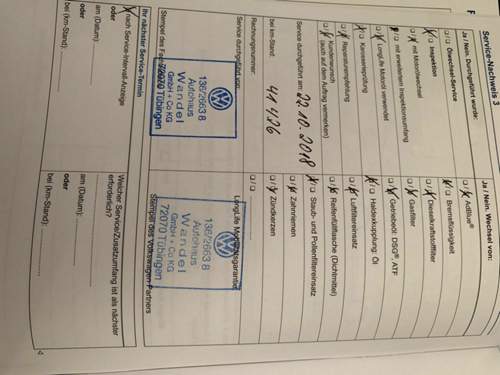 Service-Nachweis 3
Ja / Nein. Durchgeführt wurde:
Ölwechsel-Service
Inspektion
mit Motorölwechsel
mit erweitertem Inspektionsumfang
LongLife Motoröl verwendet
Karosserieprüfung
Reparaturempfehlung
Kundenwunsch
(auch auf dem Auftrag vermerken)
Service durchgeführt am: 22.10.2018
bei km-Stand: 41426
Rechnungsnummer:
Service durchgeführt von:
136/2663 8
Autohaus
Wandel
GmbH + Co KG
72070 Tübingen
Stempel des
Ihr nächster Service-Termin
nach Service-Intervall-Anzeige
oder
am (Datum):
oder
bei (km-Stand):
Ja / Nein. Wechsel von:
AdBlue®
Bremsflüssigkeit
Dieselkraftstofffilter
Gasfilter
Getriebeöl: DSG®, ATF
Haldexkupplung: Öl
Luftfiltereinsatz
Reifenfüllflasche (Dichtmittel)
Staub- und Pollenfiltereinsatz
Zahnriemen
Zündkerzen
LongLife Mobilitätsgarantie!
136/2663 8
Autohaus
Wandel
GmbH + Co KG
72070 Tübingen
Stempel des Volkswagen Partners
Welcher Service/Zusatzumfang ist als nächster
erforderlich?
am (Datum):
oder
bei (km-Stand):